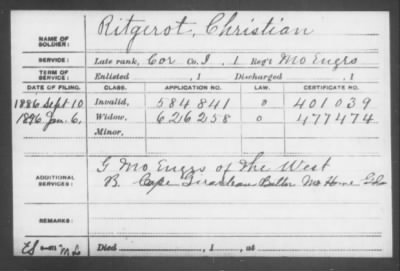 NAME OF SOLDIER: Ritgerot, Christian
SERVICE: Late rank, Cor Co. I, 1 Reg't Mo Engrs
TERM OF SERVICE: Enlisted , 1 Discharged , 1
DATE OF FILING. CLASS. APPLICATION NO. LAW. CERTIFICATE NO.
1886 Sept 10 Invalid, 584841 o 401039
1896. Jan. 6, Widow, 626258 o 477474
Minor,
ADDITIONAL SERVICES: G Mo Engrs of the West
B. Cape Girardeau Battn Mo Home Gds
REMARKS:
Died , 1 , at